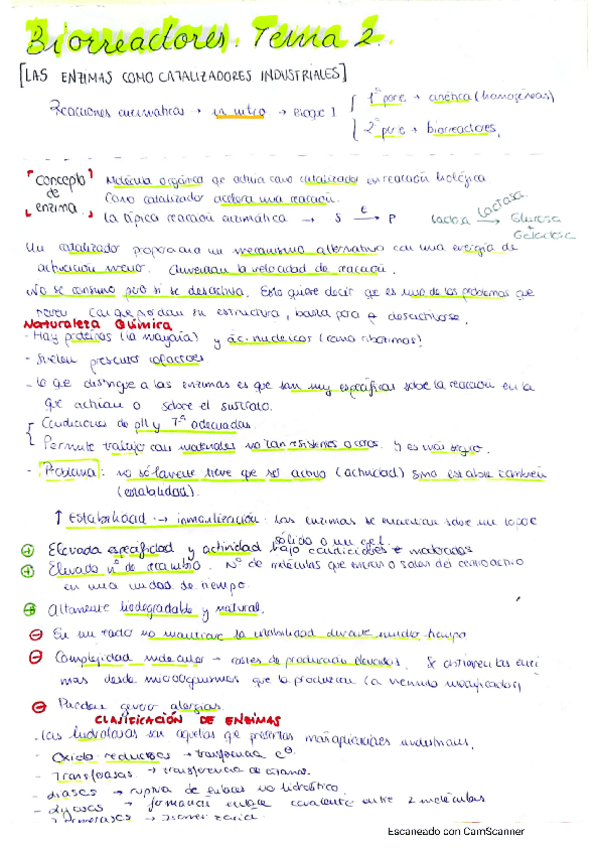 Biorreactores. Tema 2.
[LAS ENZIMAS COMO CATALIZADORES INDUSTRIALES]
Reacciones enzimáticas → in vitro → bloque 1 { 1ª parte → cinética (homogéneas)
2ª parte → biorreactores.
concepto de enzima
Molécula orgánica que actúa como catalizador en reacción biológica
Como catalizador acelera una reacción.
La típica reacción enzimática → S → P Lactosa Lactasa → Glucosa + Galactosa
Un catalizador proporciona un mecanismo alternativo con una energía de
activación menor. Aumentan la velocidad de reacción.
No se consume pero si se desactiva. Esto quiere decir que es uno de los problemas que
tienen en su estructura, basta para desactivarse.
Naturaleza Química
- Hay proteínas (la mayoría) y ác. nucleicos (como ribozimas)
- Suelen presentar cofactores
- Lo que distingue a las enzimas es que son muy específicas sobre la reacción en la
que actúan o sobre el sustrato.
Condiciones de pH y Tª adecuadas.
Permite trabajo con materiales no tan resistentes o caros y es más seguro.
- Problema: no sólamente tiene que ser activo (actividad) sino estable también
(estabilidad).
↑ Estabilidad → inmovilización. Las enzimas se encuentran sobre un soporte
sólido o un gel.
+ Elevada especificidad y actividad bajo condiciones moderadas
+ Elevado nº de recambio. Nº de moléculas que entran o salen del centro activo
en una unidad de tiempo.
+ Altamente biodegradable y natural.
- En un reactor no mantiene la estabilidad durante mucho tiempo
- Complejidad molecular → costes de producción elevados. Se obtienen las enzi
mas desde microorganismos que la producen (a menudo modificados)
- Pueden generar alergias.
CLASIFICACIÓN DE ENZIMAS
. Las hidrolasas son aquellas que presentan más aplicaciones industriales.
- Oxido reductasas → transferencia e⊖
- Transferasas → transferencia de átomos.
- Liasas → ruptura de enlaces no hidrolítico
- Ligasas → formación enlace covalente entre 2 moléculas
- Isomerasas →
Escaneado con CamScanner